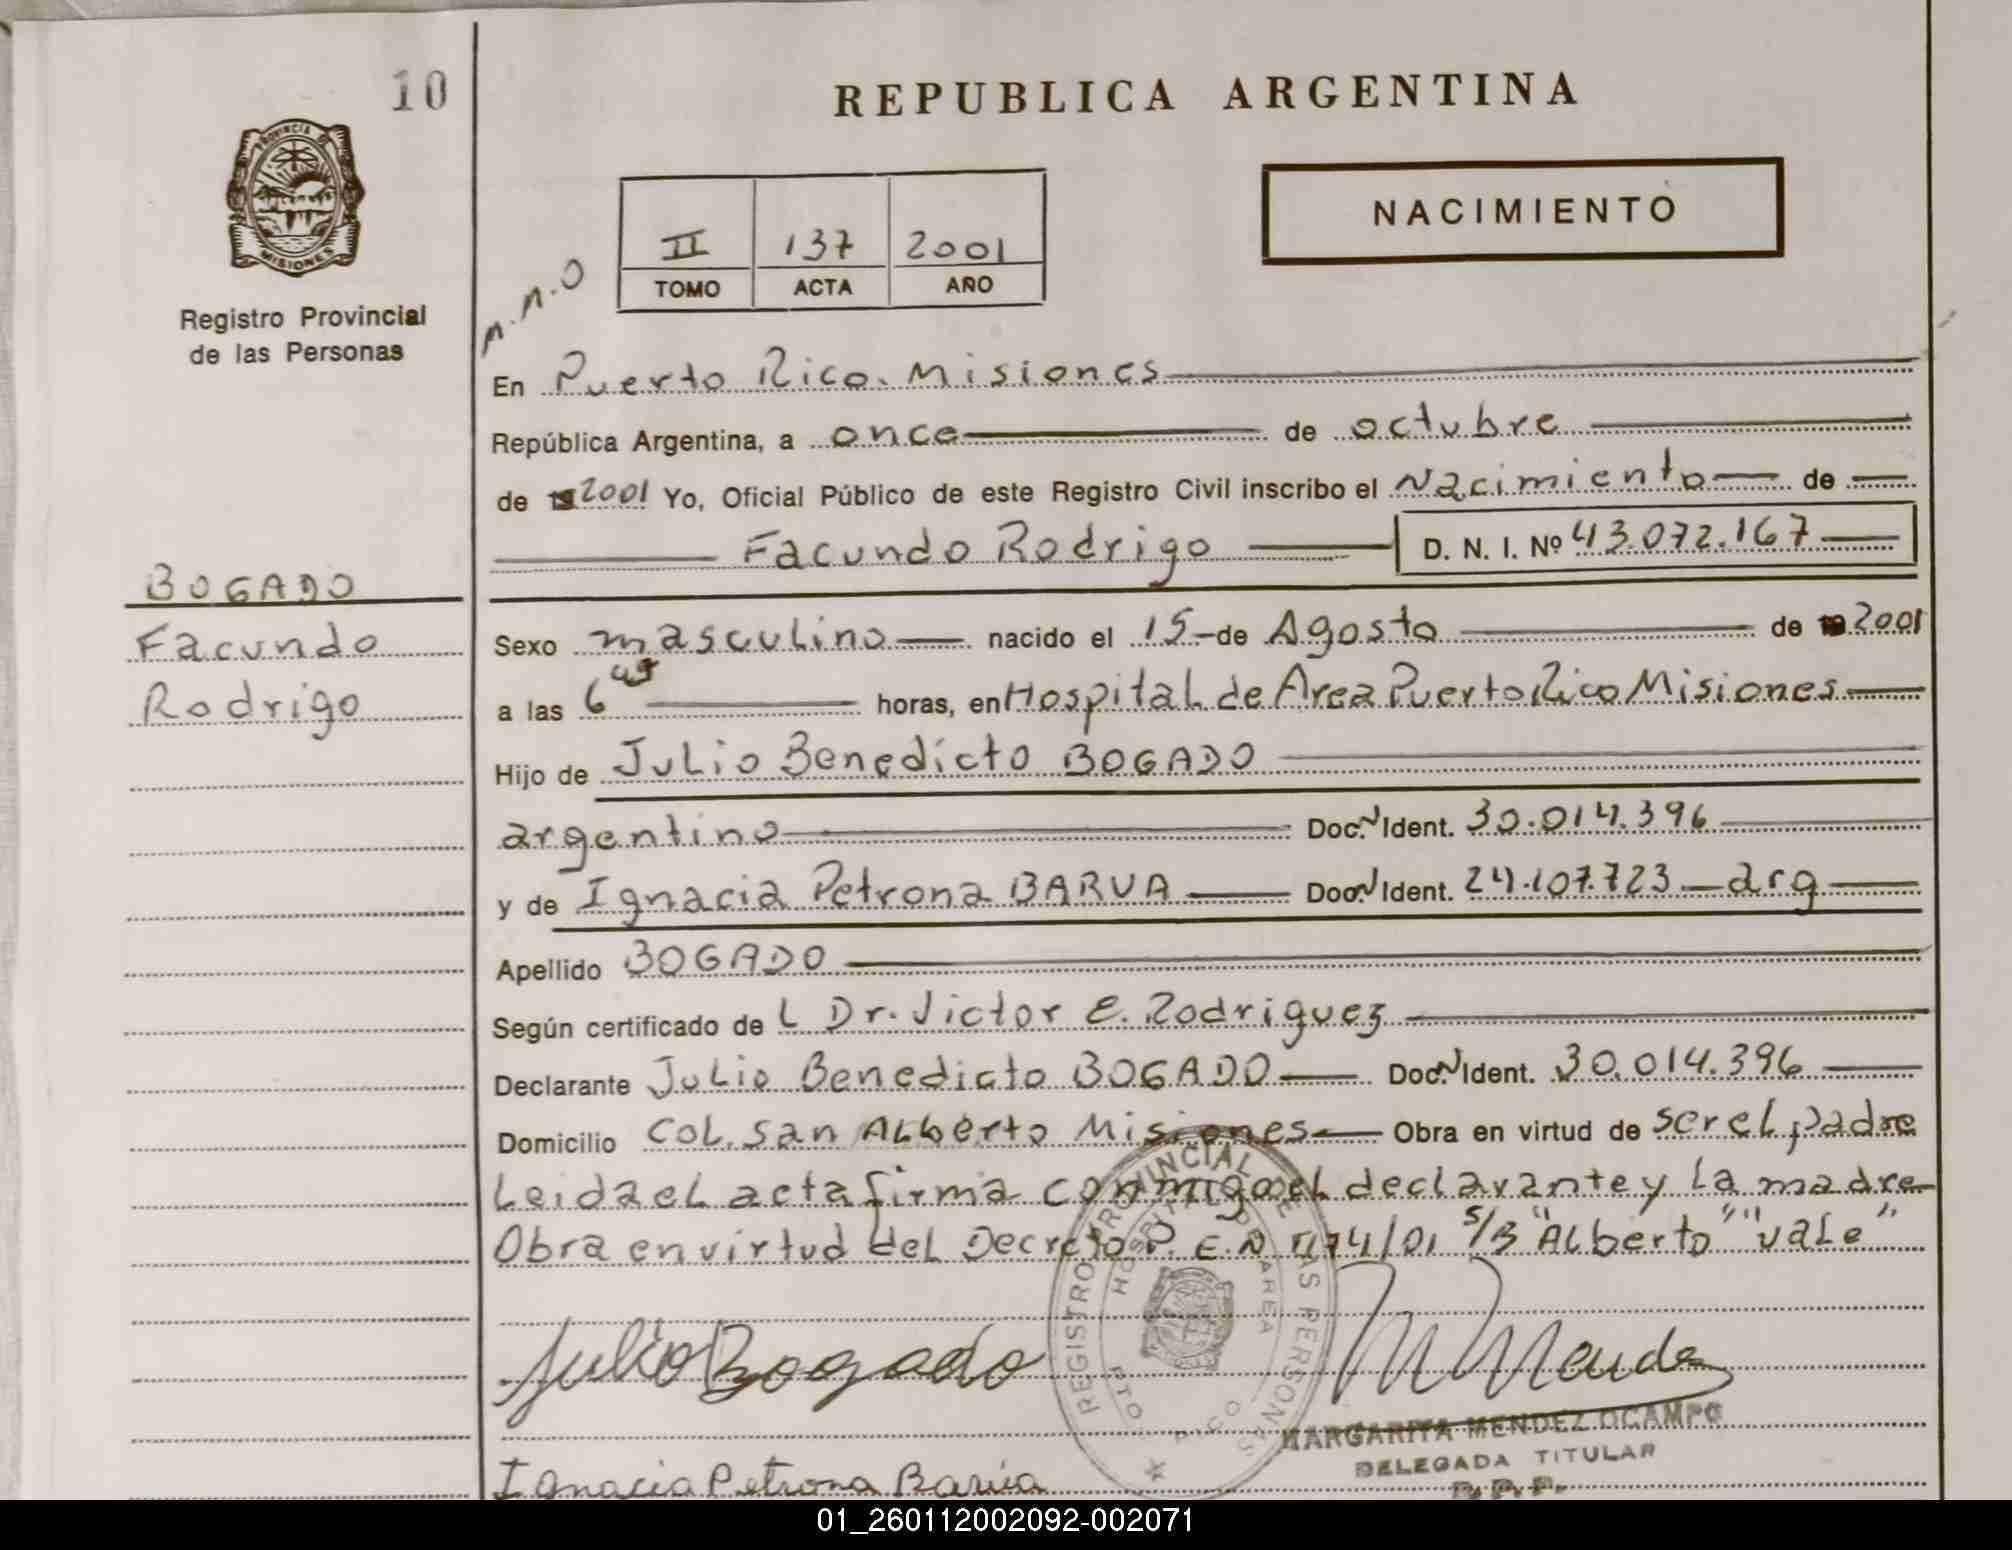 10
REPUBLICA ARGENTINA
PROVINCIA DE
MISIONES
Registro Provincial
de las Personas
NACIMIENTO
II 137 2001
TOMO ACTA AÑO
M.M.O
En Puerto Rico. Misiones
República Argentina, a once de octubre
de 2001 Yo, Oficial Público de este Registro Civil inscribo el Nacimiento de
Facundo Rodrigo D. N. I. Nº 43.072.167
BOGADO
Facundo
Rodrigo
Sexo masculino nacido el 15 de Agosto de 2001
a las 6 45 horas, en Hospital de Area Puerto Rico Misiones
Hijo de Julio Benedicto BOGADO
argentino Doc. N Ident. 30.014.396
y de Ignacia Petrona BARUA Doc. N Ident. 24.107.723 arg
Apellido BOGADO
Según certificado de L Dr. Victor E. Rodriguez
Declarante Julio Benedicto BOGADO Doc. N Ident. 30.014.396
Domicilio COL. San ALberto Misiones Obra en virtud de ser el padre
Leida el acta firma conmigo el declarante y La madre
Obra en virtud del Decreto P.E.N 1174/01 S/B "ALberto" "vaLe"
Julio Bogado
REGISTRO PROVINCIAL DE LAS PERSONAS
HOSPITAL DE AREA
PTO RICO
M Mende
MARGARITA MENDEZ OCAMPO
DELEGADA TITULAR
R.P.P.
Ignacia Petrona Barúa
01_260112002092-002071